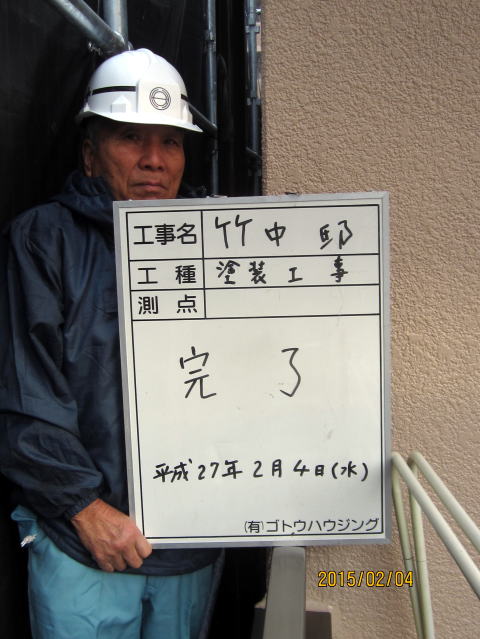 工事名 竹中邸
工種 塗装工事
測点
完了
平成27年2月4日(水)
(有)ゴトウハウジング
2015/02/04